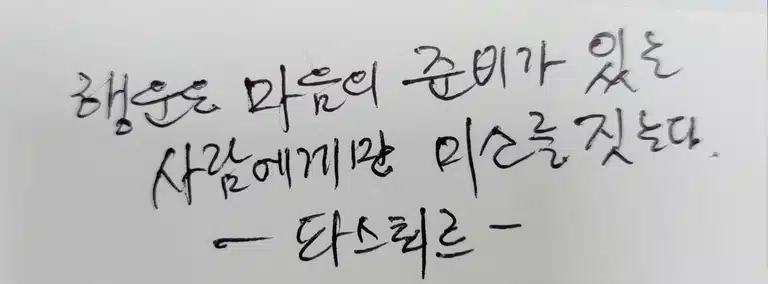 행운은 마음의 준비가 있는
사람에게만 미소를 짓는다.
- 파스퇴르 -